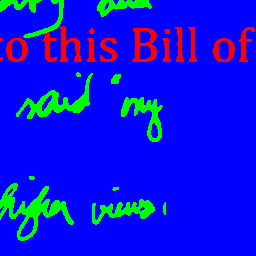 and
to this Bill of
said "my
higher views.